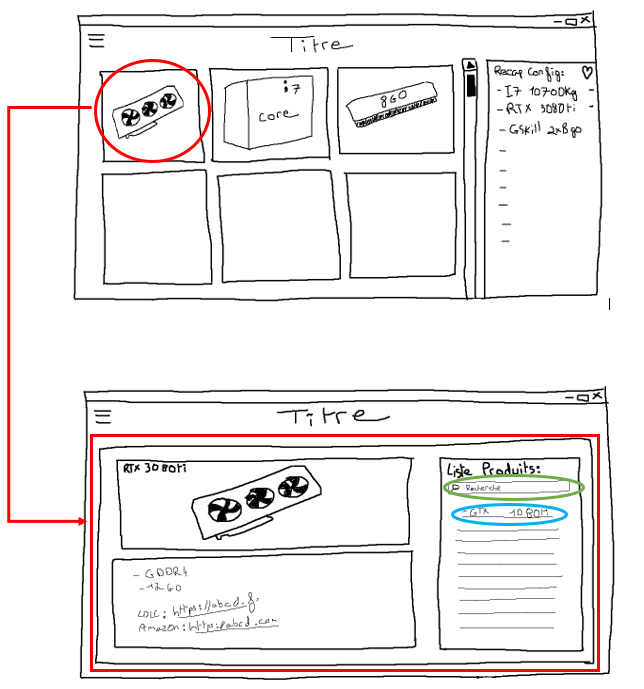 Titre
i7
core
8GO
Recap Config:
- I7 10700Kg -
- RTX 3080ti -
- GSkill 2x8go
Titre
RTX 3080ti
- GDDR4
- 12GO
LDLC: https://abcd.fr
Amazon: https@abcd.com
Liste Produits:
Recherche
- GTX 1080ti